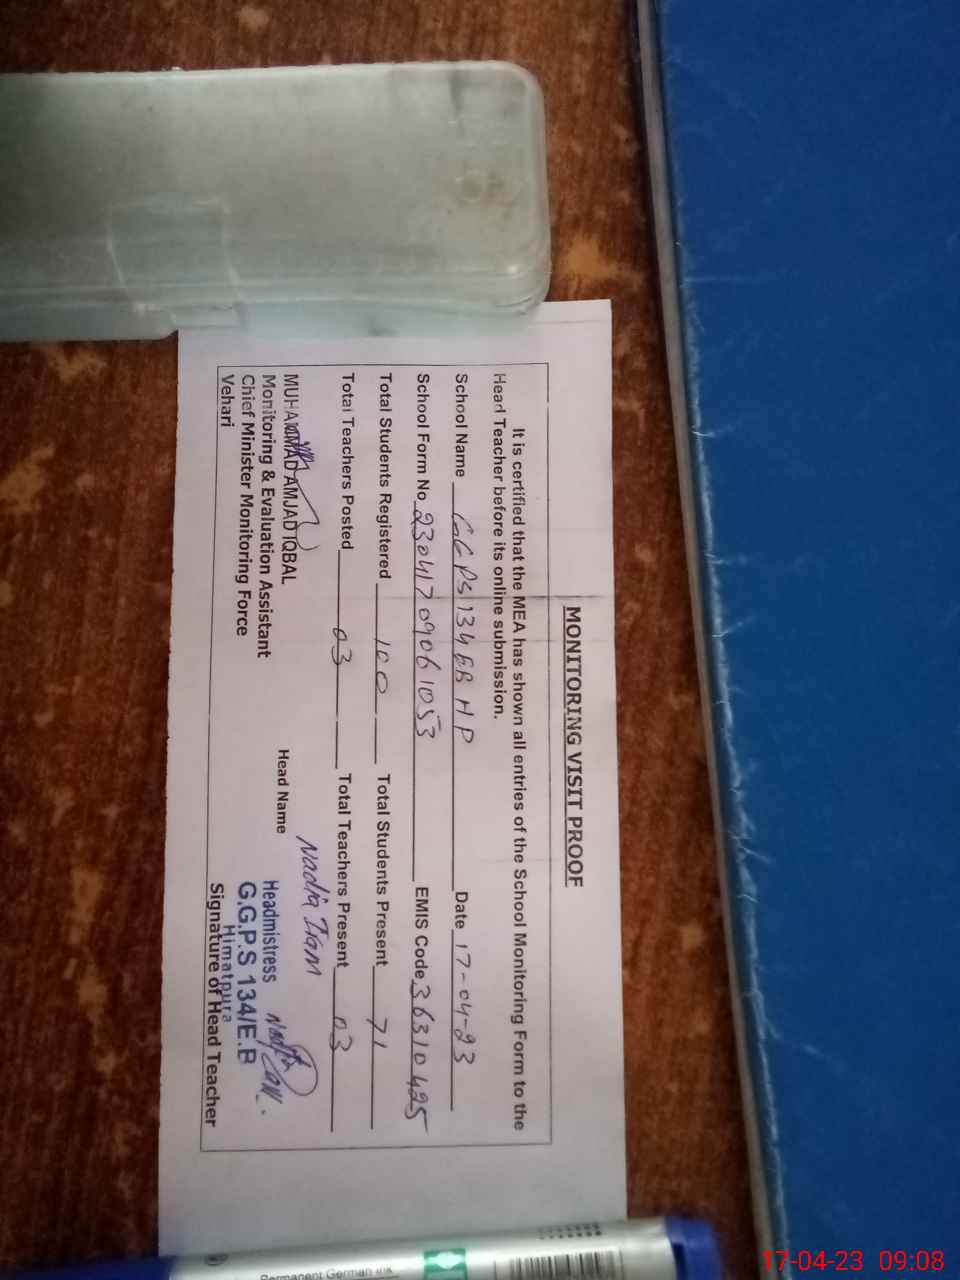 MONITORING VISIT PROOF
It is certified that the MEA has shown all entries of the School Monitoring Form to the
Head Teacher before its online submission.
School Name GGPS 134 EB HP Date 17-04-23
School Form No 23041709061053 EMIS Code 36310425
Total Students Registered 100 Total Students Present 71
Total Teachers Posted 03 Total Teachers Present 03
Nadia Iram
MUHAMMAD AMJAD IQBAL Head Name
Monitoring & Evaluation Assistant Headmistress
Chief Minister Monitoring Force G.G.P.S 134/E.B
Himatpura
Vehari Signature of Head Teacher
Permanent German
17-04-23 09:08